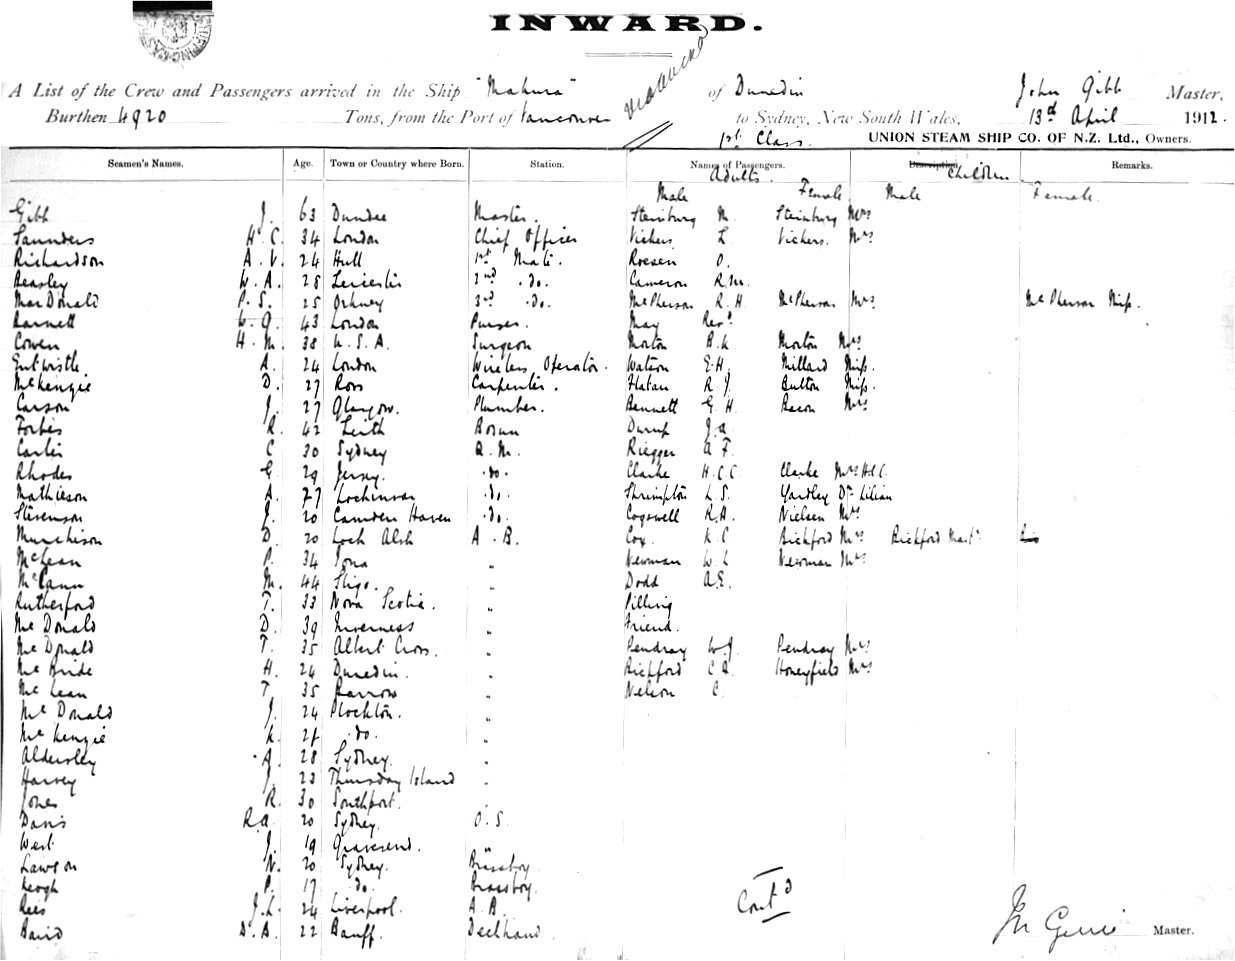 INWARD.
A List of the Crew and Passengers arrived in the Ship "Makura" of Dunedin John Gibb Master,
Burthen 4920 Tons, from the Port of Vancouver to Sydney, New South Wales, 13th April 1912
1st Class. UNION STEAM SHIP CO. OF N.Z. Ltd., Owners.
Seamen's Names. Age. Town or Country where Born. Station. Names of Passengers. Description Remarks.
Adults. Children
Male Female Male Female
Gibb J. 63 Dundee Master. Steinburg M. Steinburg Mrs
Saunders H. C. 34 London Chief Officer Vickers L Vickers. Mrs
Richardson A. V. 24 Hull 1st Mate. Roesen O.
Beasley W. A. 28 Leicester 2nd do. Cameron R. M.
MacDonald P. S. 25 Orkney 3rd do. McPherson R. H. McPherson Mrs McPherson Miss.
Barnett W. G. 43 London Purser. May Revd
Cowen H. M. 38 U. S. A. Surgeon Morton B. K. Morton Mrs
Entwistle. A. 24 London Wireless Operator. Watson E. H. Millard Miss.
McKenzie D. 27 Ross Carpenter. Flatau R J. Bulton Miss.
Carson J. 27 Glasgow. Plumber. Bennett G H. Bacon Mrs
Forbes R. 42 Leith Bosun J. A.
Carter C 30 Sydney Q. M. Riegger A F.
Rhodes G 29 Jersey. do. Clarke H. C. C Clarke Mrs H. C. C.
Mathieson A. 27 Lochinver do. Shrimpton L. S. Yardley Dr Lilian
Stevenson J. 20 Camden Haven do. Cogswell R. A. Nielsen Mrs
Murchison D. 20 Loch Alsh A. B. Cox K. C Bickford Mrs Bickford Mast.
McLean P. 34 Iona " Newman W. L Newman Mrs
McCann M. 44 Sligo. " Dodd A. E.
Rutherford T. 33 Nova Scotia. " Pilling
McDonald D. 39 Inverness " Friend.
McDonald T. 35 Albert Cross. " Pendray W. J. Pendray Mrs
McBride H. 24 Dunedin. " Bickford C R. Honeyfield Mrs
McLean T 35 Barrow " Nelson C.
McDonald J. 24 Plockton. "
McKenzie K. do. "
Aldersley A. 28 Sydney. "
Harvey J. 23 Thursday Island "
Jones R. 30 Southport. "
Davis R. A. 20 Sydney. O. S.
West J. 19 Gravesend. "
Lawson N. 20 Sydney. Brassboy.
Keogh P. 17 do. Brassboy.
Rees J. L. 24 Liverpool. A. B.
Baird D. A. 22 Banff. Deckhand.
Contd
Master.